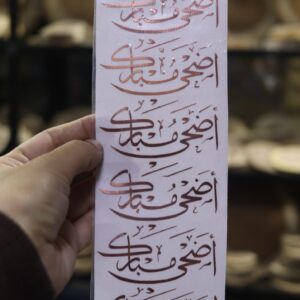 أضحى مبارك
أضحى مبارك
أضحى مبارك
أضحى مبارك
أضحى مبارك
أضحى